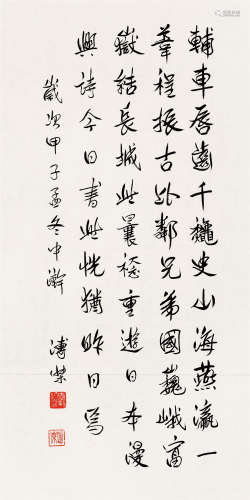 輔車唇齒千龝史山海燕瀛一
葦程振古比鄰兄弟國巍峨富
嶽結長城此曩稔重遊日本漫
興詩今日書此恍猶昨日焉
歲次甲子孟冬中澣
溥傑